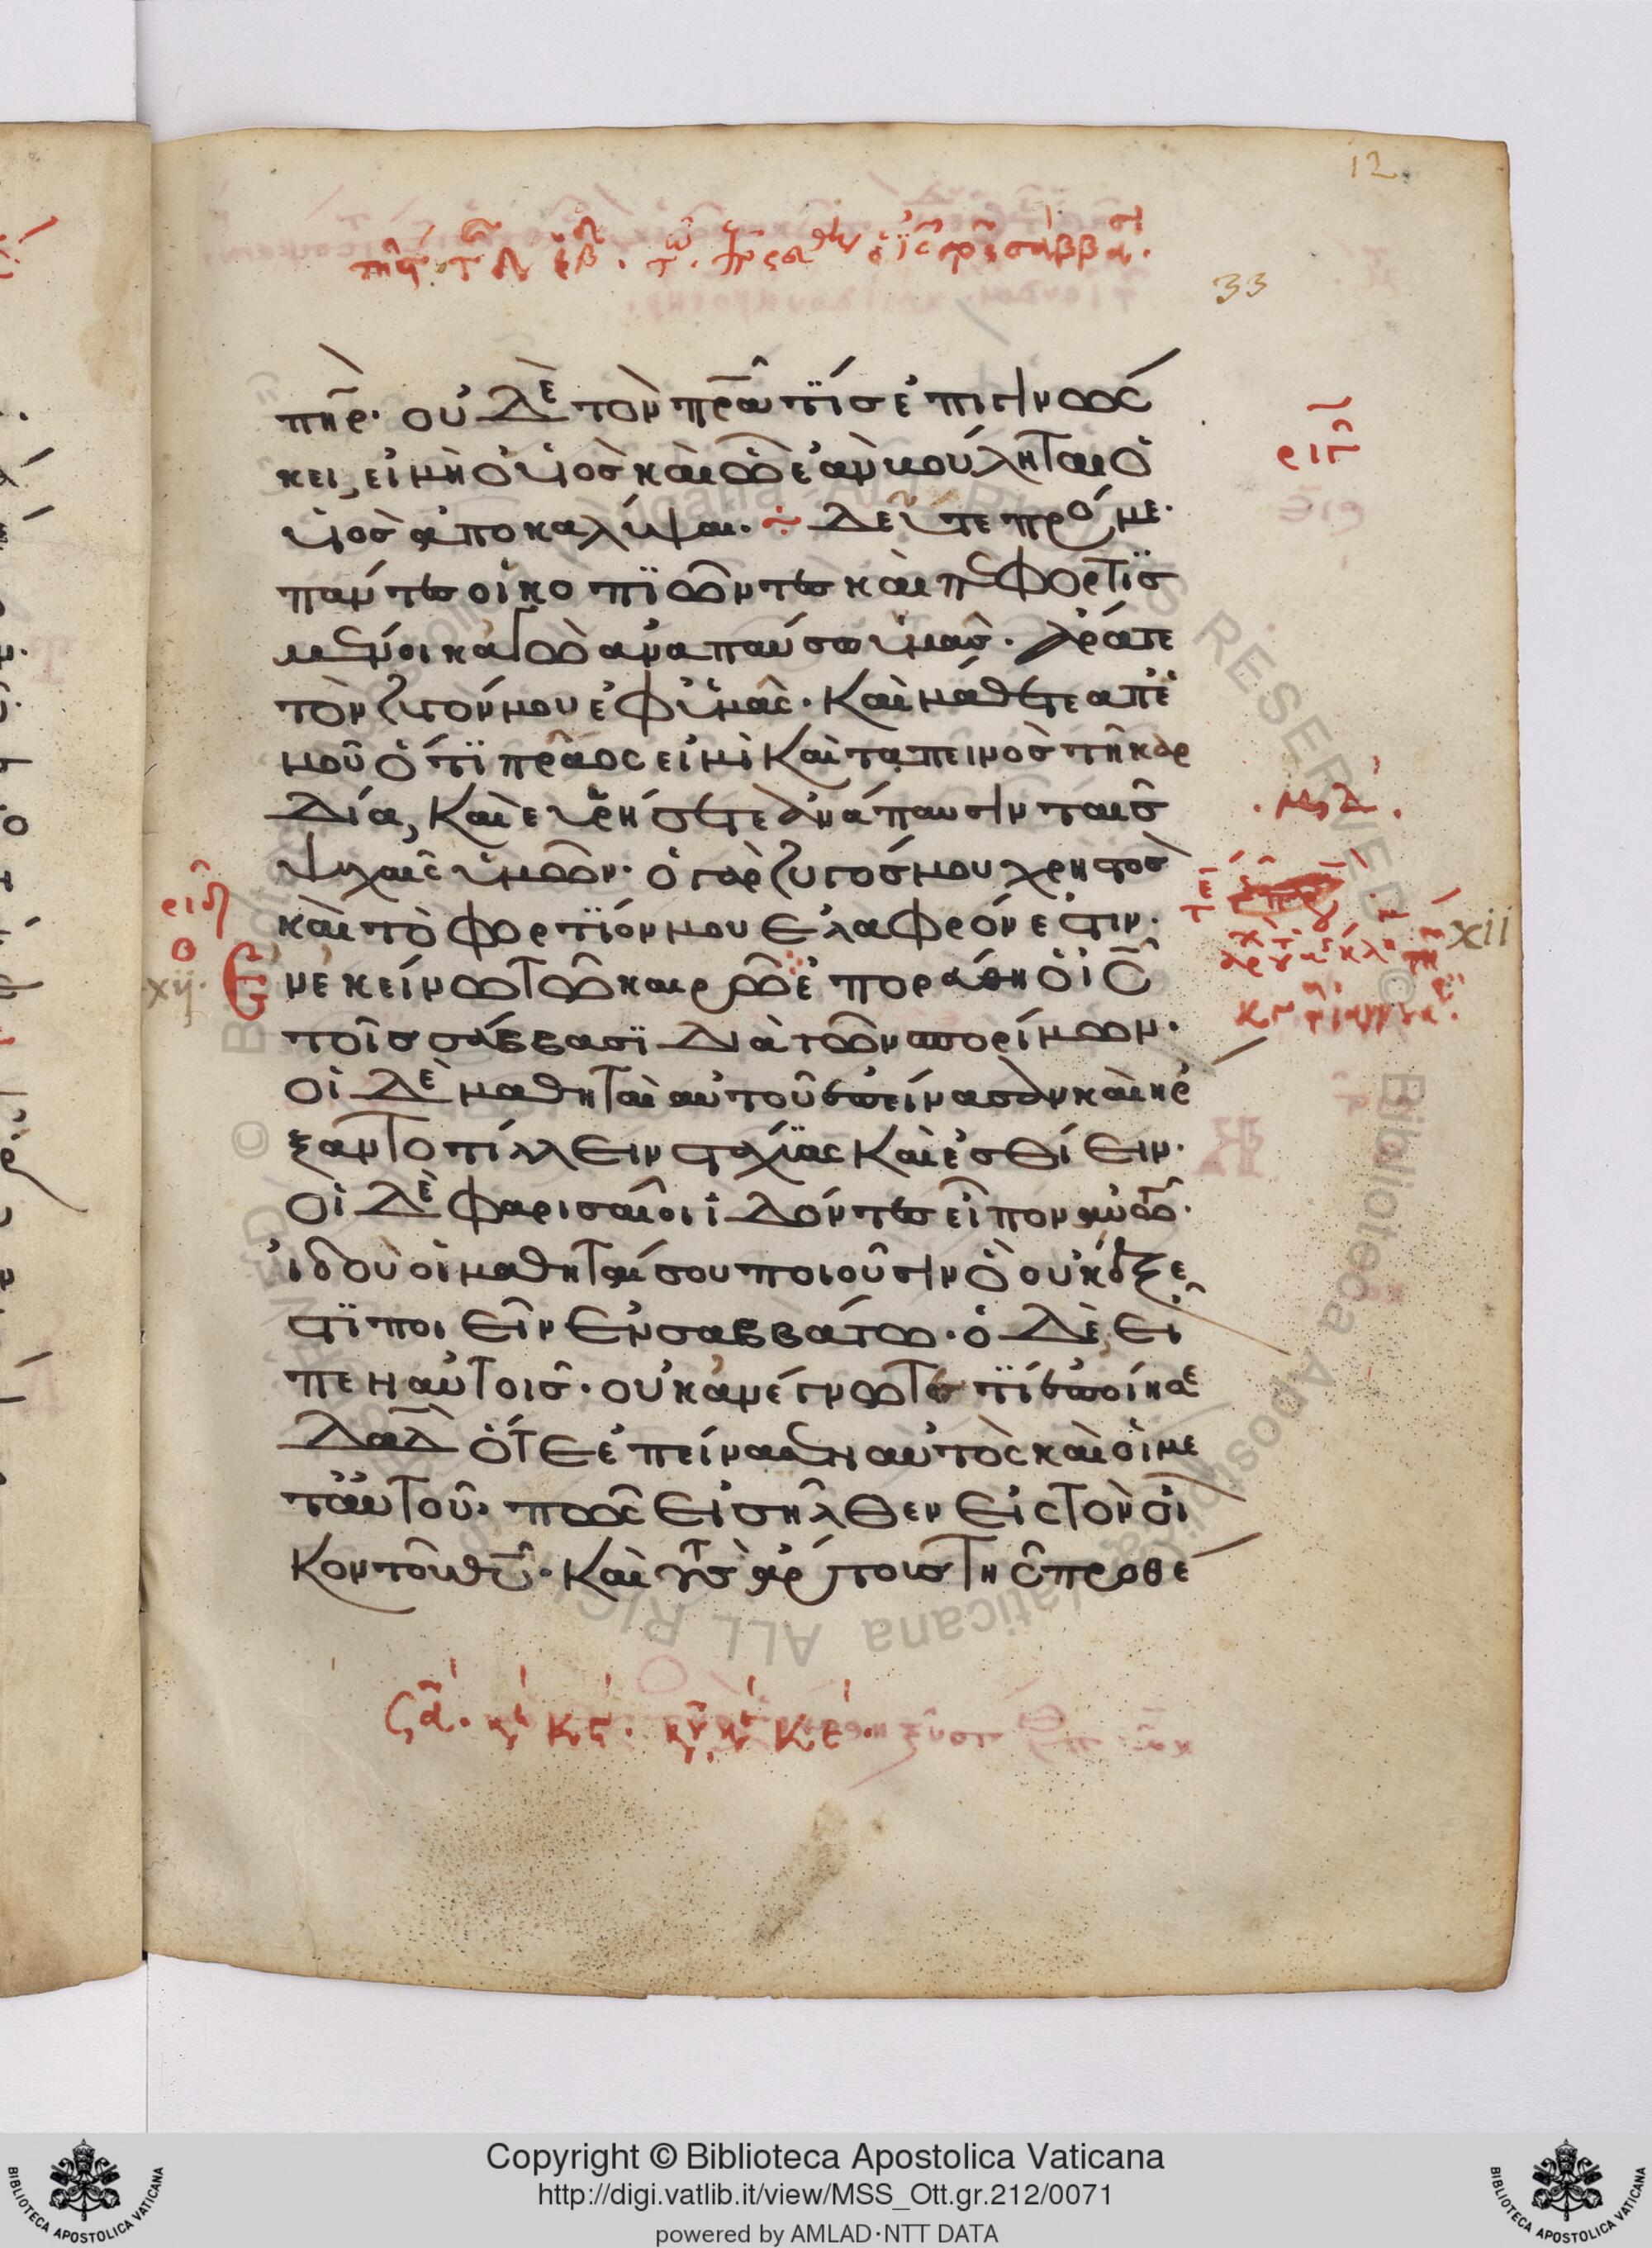 12
33
πηρ· οὐδὲ τὸν πρα τίς ἐπιγινώσ
κει, εἰ μὴ ὁ υἱὸς καὶ ὧ ἐὰν βούληται ὁ
υἱὸς ἀποκαλύψαι· Δεῦτε πρός με·
πάντες οἱ κοπιῶντες καὶ πεφορτισ
μένοι κἀγὼ ἀναπαύσω ὑμᾶς· ἄρατε
τὸν ζυγόν μου ἐφ ὑμᾶς· Καὶ μάθετε ἀπ ἐ
μοῦ ὅτι πρᾶος εἰμὶ Καὶ ταπεινὸς τῆ καρ
δία, Καὶ εὑρήσετε ἀνάπαυσιν ταῖς
ψυχαῖς ὑμῶν· ὁ γὰρ ζυγός μου χρηστὸς
καὶ τὸ φορτίον μου ἐλαφρόν ἐστιν·
xii
xij·
Ἐν ἐκείνω τῶ καιρῶ ἐπορεύθη ὁ ις
τοῖς σάββασι Διὰ τῶν σπορίμων·
οἱ δὲ μαθηταὶ αὐτοῦ ἐπείνασαν καὶ ἤρ
ξαντο τίλλειν στάχυας Καὶ ἐσθίειν·
οἱ δὲ Φαρισαῖοι ἰδόντες εἶπον αὐτῶ·
ἰδοὺ οἱ μαθηταί σου ποιοῦσιν ὃ οὐκ ἔξε
στι ποιεῖν ἐν σαββάτω· ὁ δὲ εἶ
πεν αὐτοῖς· οὐκ ἀνέγνωτε τί ἐποίησε
δαδ ὅτε ἐπείνασεν αὐτὸς καὶ οἱ με
τ αὐτοῦ· πῶς εἰσῆλθεν εἰς τὸν οἶ
κον τοῦ θυ· Καὶ τοὺς ἄρτους τῆς προθέ
Copyright © Biblioteca Apostolica Vaticana
http://digi.vatlib.it/view/MSS_Ott.gr.212/0071
powered by AMLAD·NTT DATA
BIBLIOTECA APOSTOLICA VATICANA
BIBLIOTECA APOSTOLICA VATICANA